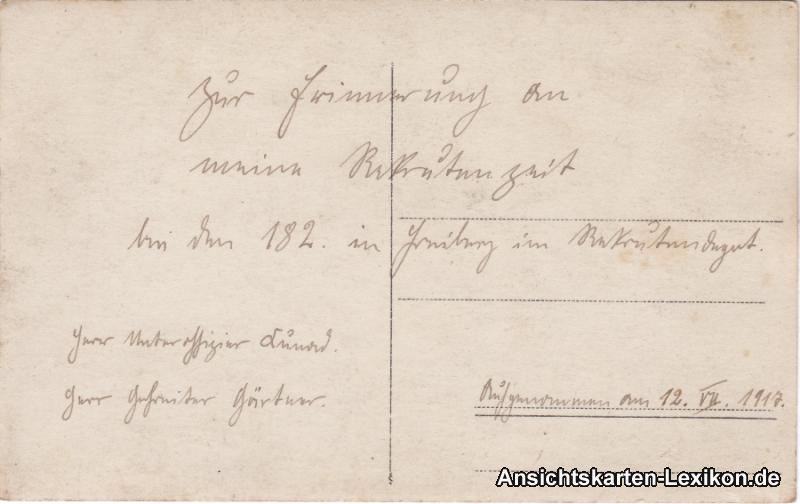 Zur Erinnerung an
meine Rekrutenzeit
bei den 182. in Freiberg im Rekrutendepot.
Herr Unteroffizier
Herr Gefreiter Gärtner.
Aufgenommen am 12. VII. 1917.
Ansichtskarten-Lexikon.de